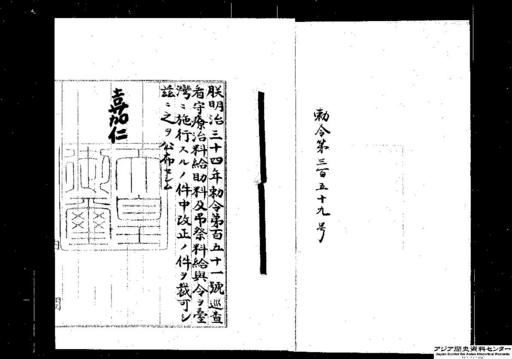 勅令第三百五十九号
朕明治三十四年勅令第百五十一號巡査
看守療治料給助料及弔祭料給與令ヲ臺
灣ニ施行スルノ件中改正ノ件ヲ裁可シ
茲ニ之ヲ公布セシム
嘉仁
天皇御璽
アジア歴史資料センター
Japan Center for Asian Historical Records